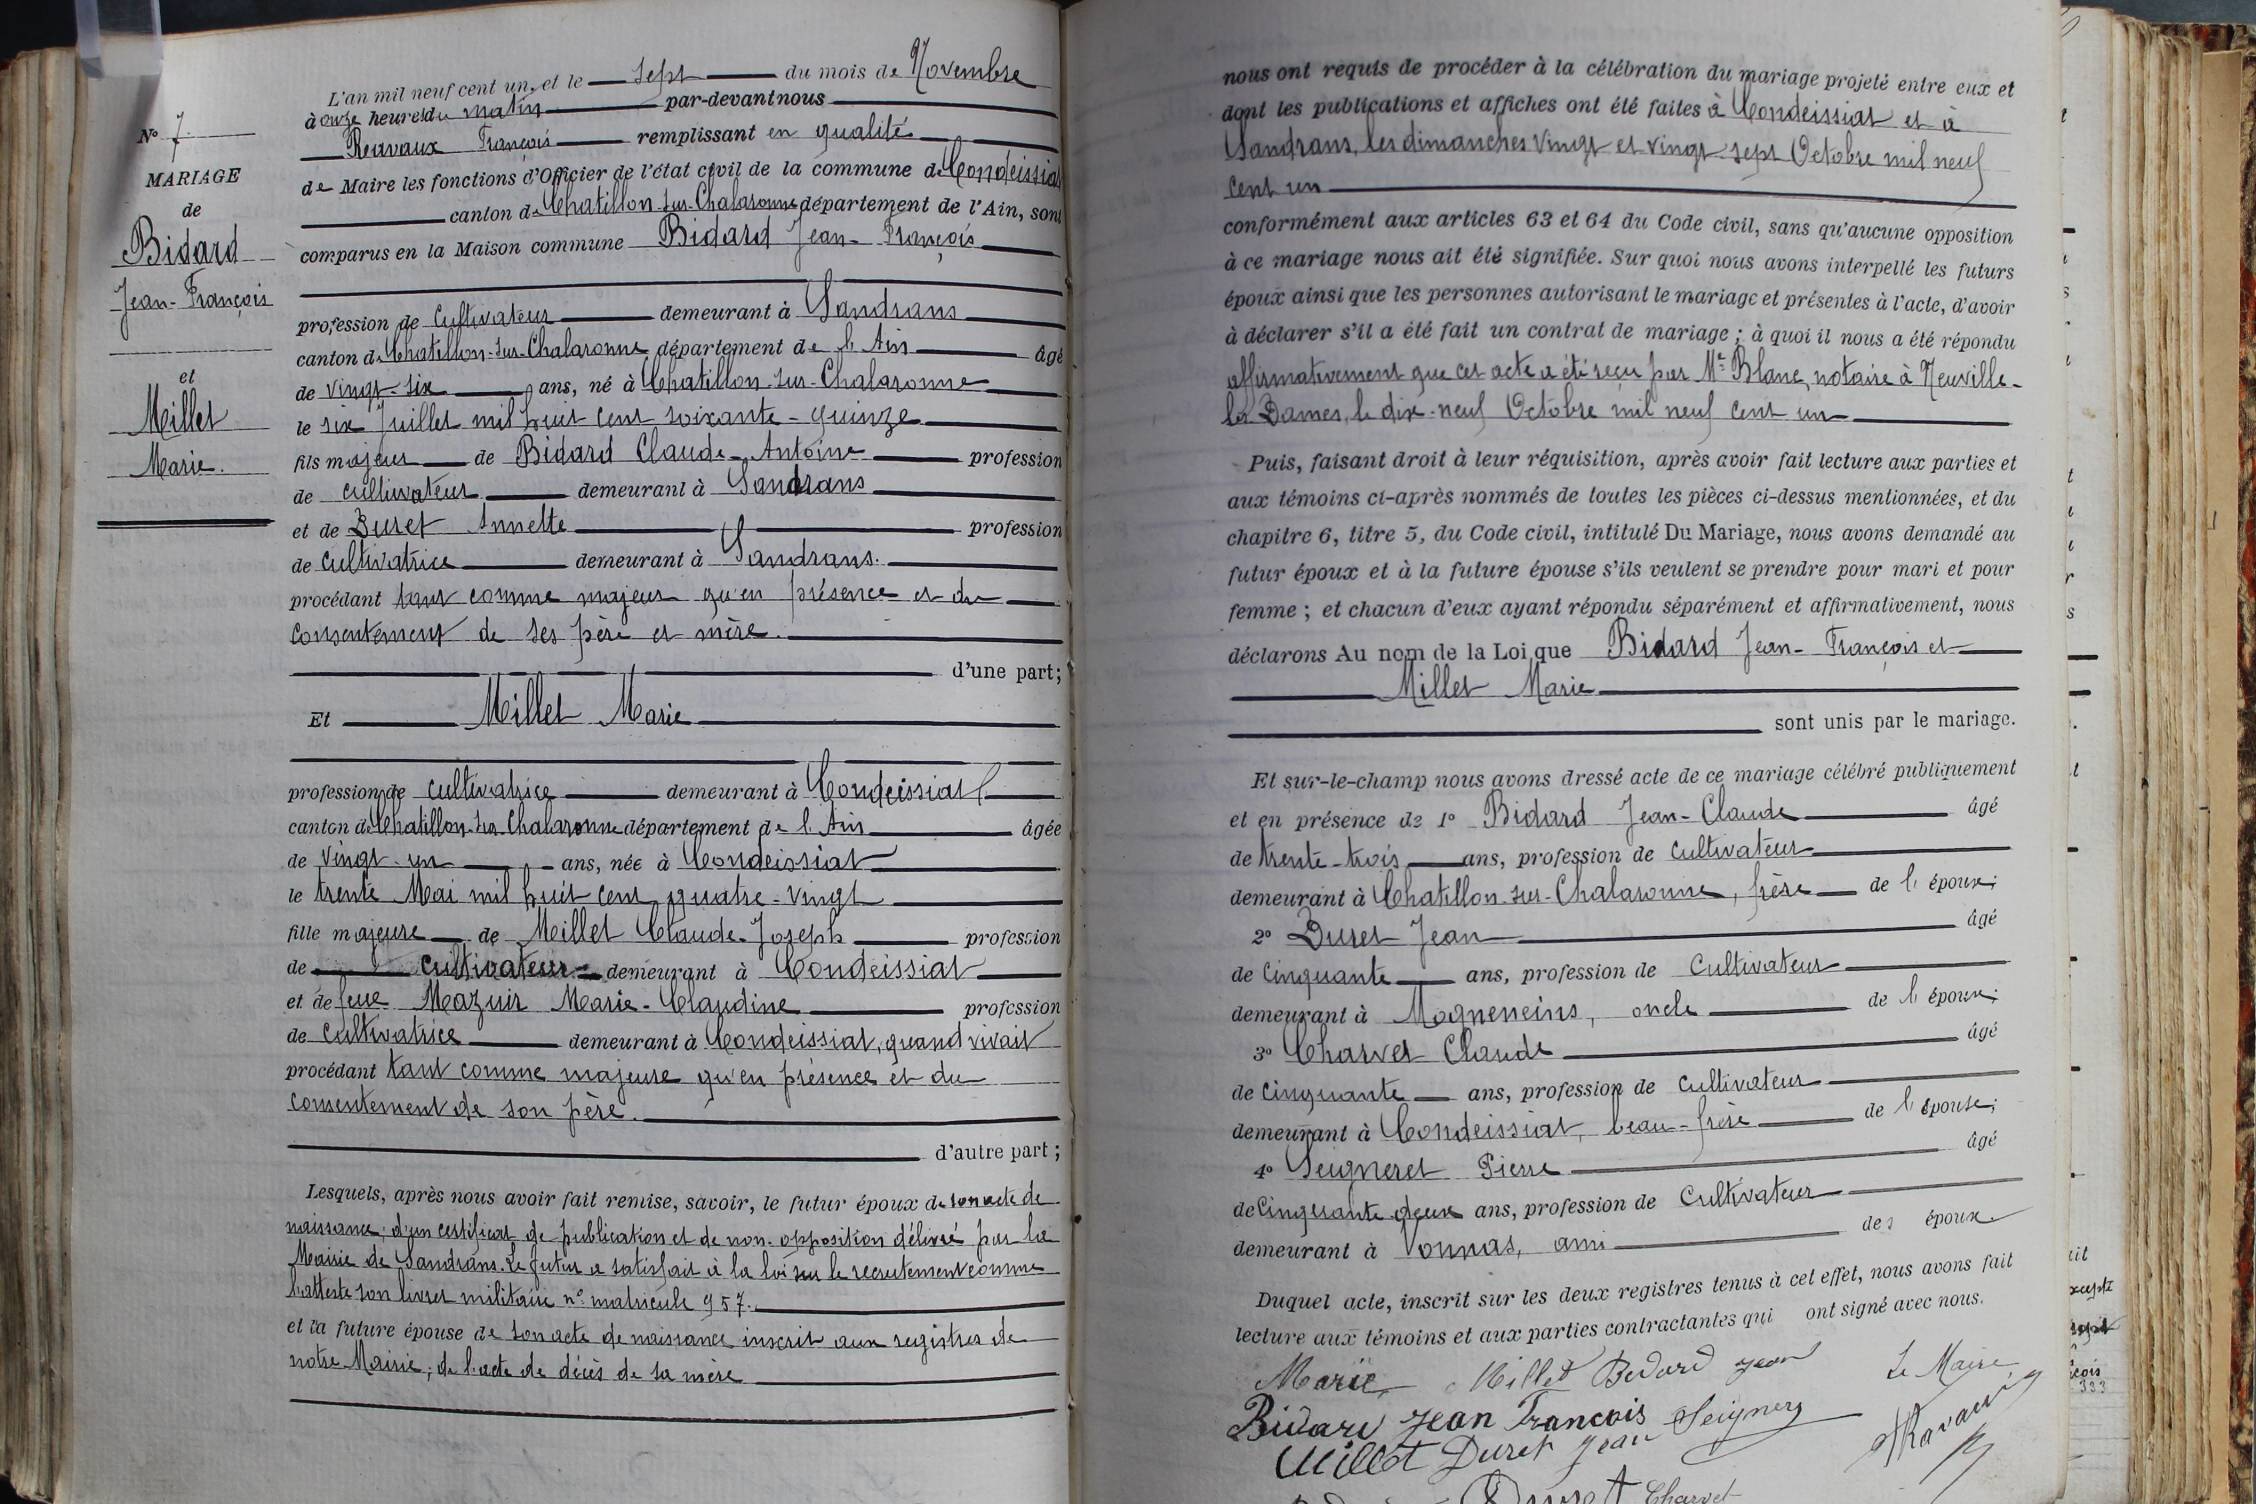 N° 7.
MARIAGE
de
Bidard
Jean-François
et
Millet
Marie.
L'an mil neuf cent un, et le sept du mois de Novembre
à onze heures du matin par-devant nous
François remplissant en qualité
de Maire les fonctions d'Officier de l'état civil de la commune de Condeissiat
canton de Chatillon-sur-Chalaronne département de l'Ain, sont
comparus en la Maison commune Bidard Jean-François
profession de cultivateur demeurant à Sandrans
canton de Chatillon-sur-Chalaronne département de l'Ain âgé
de vingt-six ans, né à Chatillon-sur-Chalaronne
le six Juillet mil huit cent soixante-quinze
fils majeur de Bidard Claude-Antoine profession
de cultivateur demeurant à Sandrans
et de Duret Annette profession
de cultivatrice demeurant à Sandrans.
procédant tant comme majeur qu'en présence et du
consentement de ses père et mère.
d'une part;
Et Millet Marie
profession de cultivatrice demeurant à Condeissiat
canton de Chatillon-sur-Chalaronne département de l'Ain âgée
de vingt-un ans, née à Condeissiat
le trente Mai mil huit cent quatre-vingt
fille majeure de Millet Claude-Joseph profession
de cultivateur demeurant à Condeissiat
et de feue Mazuir Marie-Claudine profession
de cultivatrice demeurant à Condeissiat, quand vivait
procédant tant comme majeure qu'en présence et du
consentement de son père.
d'autre part;
Lesquels, après nous avoir fait remise, savoir, le futur époux de son acte de
naissance; d'un certificat de publication et de non-opposition délivré par la
Mairie de Sandrans. Le futur a satisfait à la loi sur le recrutement comme
l'atteste son livret militaire n° matricule 957.
et la future épouse de son acte de naissance inscrit aux registres de
notre Mairie; de l'acte de décès de sa mère
nous ont requis de procéder à la célébration du mariage projeté entre eux et
dont les publications et affiches ont été faites à Condeissiat et à
Sandrans, les dimanches vingt et vingt-sept Octobre mil neuf
cent un
conformément aux articles 63 et 64 du Code civil, sans qu'aucune opposition
à ce mariage nous ait été signifiée. Sur quoi nous avons interpellé les futurs
époux ainsi que les personnes autorisant le mariage et présentes à l'acte, d'avoir
à déclarer s'il a été fait un contrat de mariage; à quoi il nous a été répondu
affirmativement que cet acte a été reçu par Me Blanc, notaire à Neuville-
les-Dames, le dix-neuf Octobre mil neuf cent un
Puis, faisant droit à leur réquisition, après avoir fait lecture aux parties et
aux témoins ci-après nommés de toutes les pièces ci-dessus mentionnées, et du
chapitre 6, titre 5, du Code civil, intitulé Du Mariage, nous avons demandé au
futur époux et à la future épouse s'ils veulent se prendre pour mari et pour
femme; et chacun d'eux ayant répondu séparément et affirmativement, nous
déclarons Au nom de la Loi que Bidard Jean-François et
Millet Marie
sont unis par le mariage.
Et sur-le-champ nous avons dressé acte de ce mariage célébré publiquement
et en présence de 1° Bidard Jean-Claude âgé
de trente-trois ans, profession de cultivateur
demeurant à Chatillon-sur-Chalaronne, frère de l'époux;
2° Duret Jean âgé
de cinquante ans, profession de cultivateur
demeurant à Mogneneins, oncle de l'époux;
3° Charvet Claude âgé
de cinquante ans, profession de cultivateur
demeurant à Condeissiat, beau-frère de l'épouse;
4° Seigneret Pierre âgé
de cinquante-deux ans, profession de cultivateur
demeurant à Vonnas, ami des époux.
Duquel acte, inscrit sur les deux registres tenus à cet effet, nous avons fait
lecture aux témoins et aux parties contractantes qui ont signé avec nous.
Marie Millet Bidard Jean Le Maire
Bidard Jean François
Millet Duret Jean
Duret Charvet